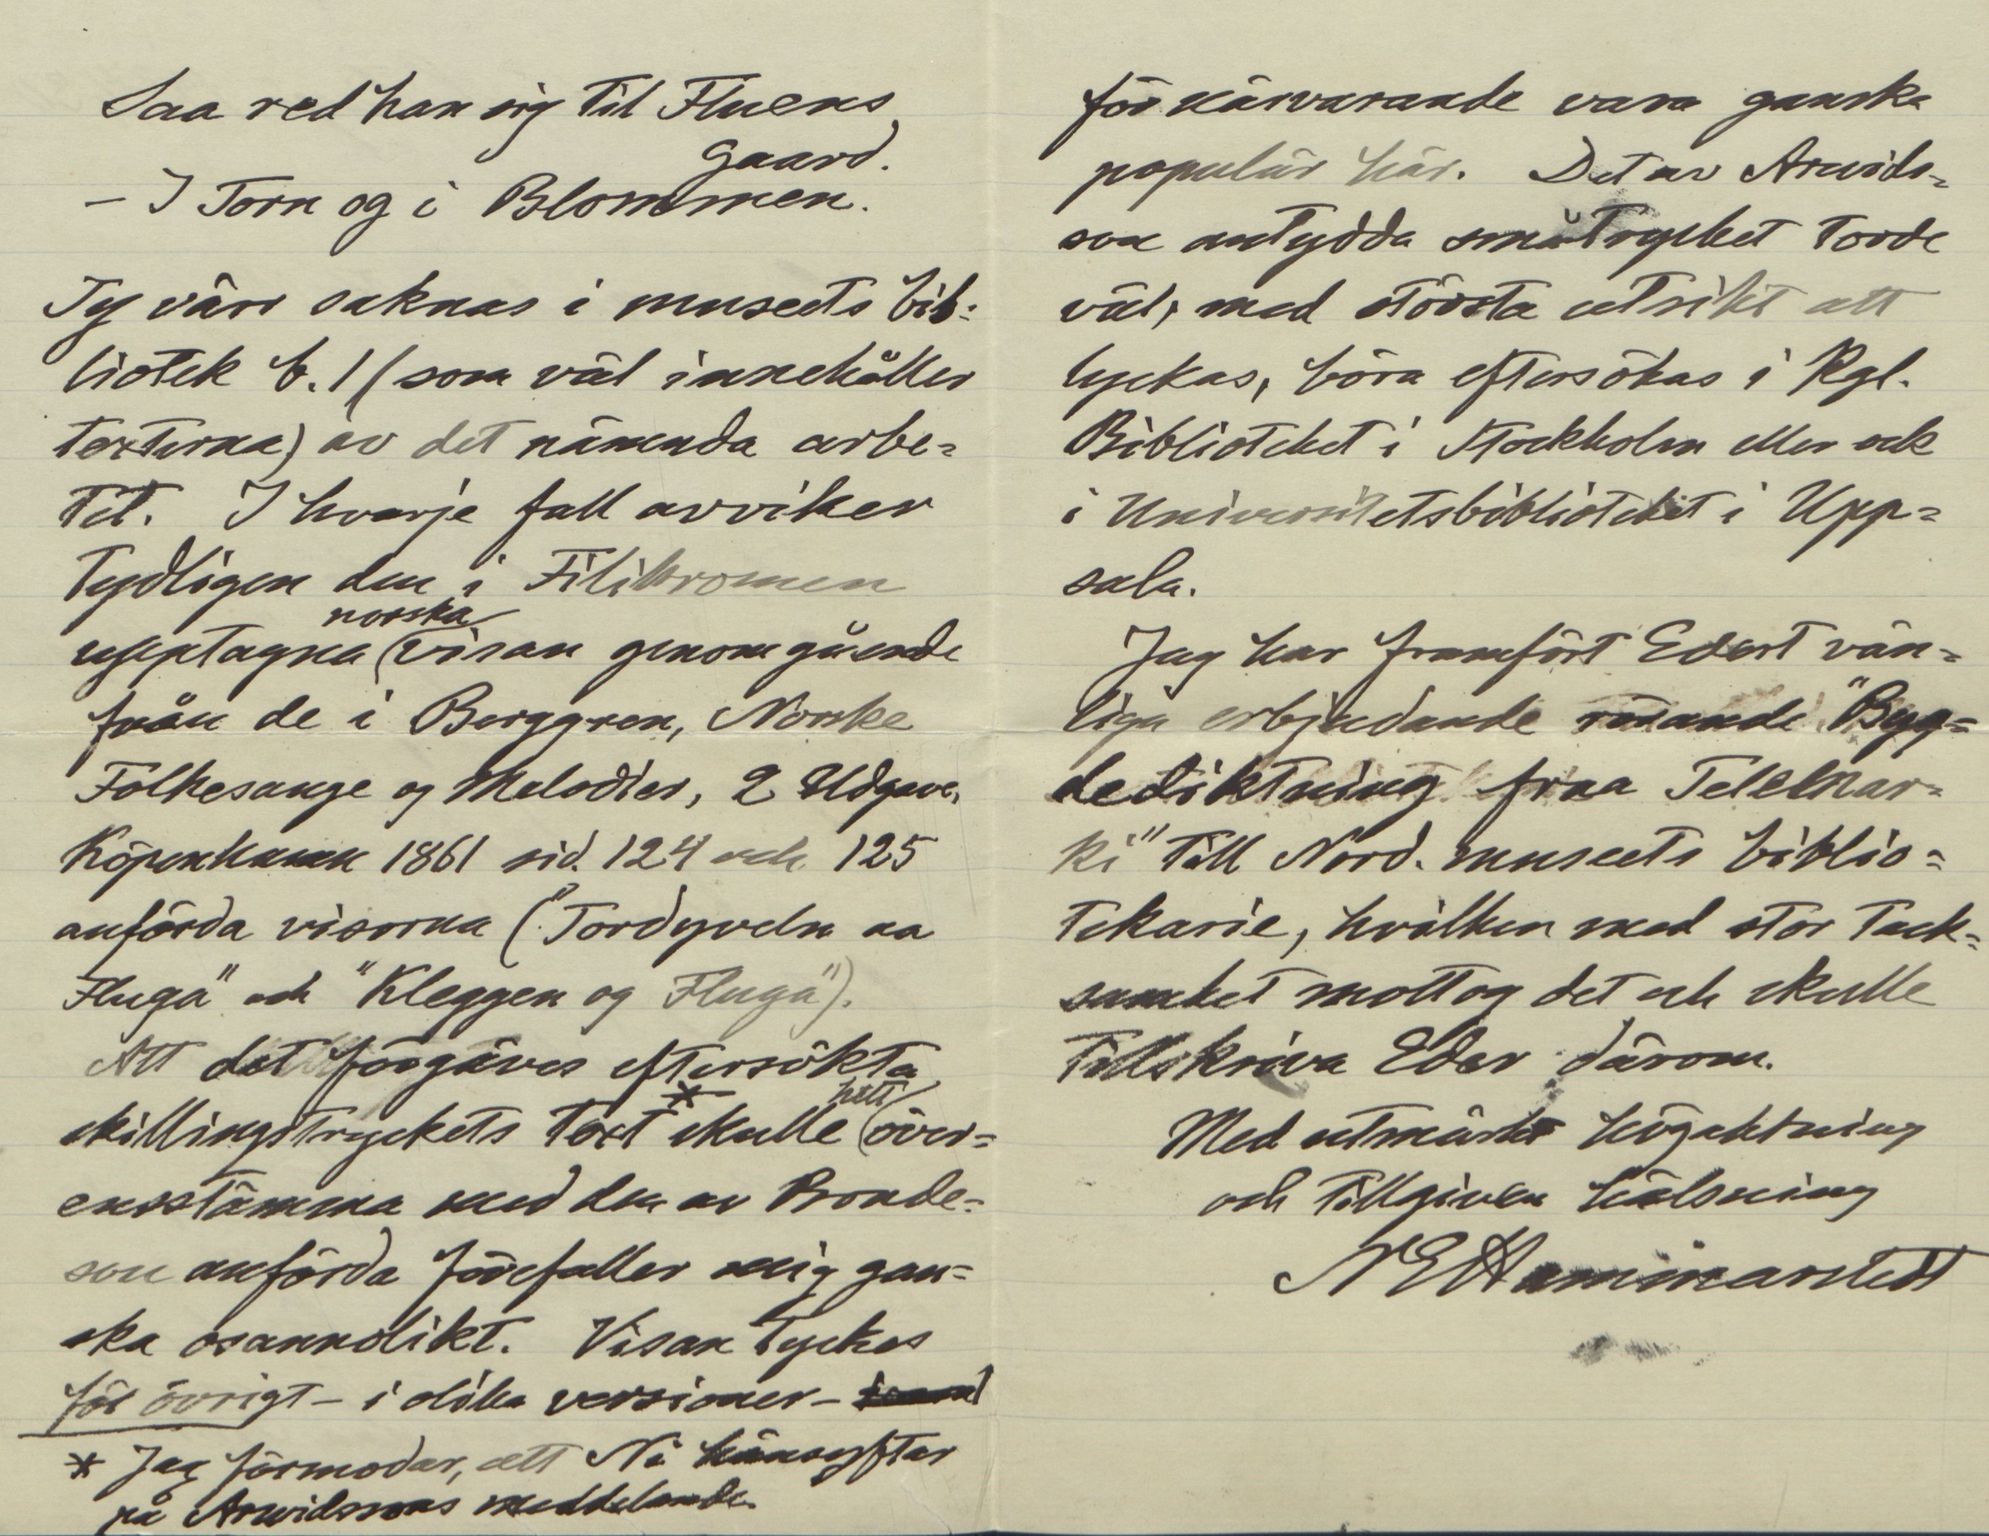 Saa red han sig til Fluens
Gaard.
– I Torn og i Blommen.
Ty värr saknas i museets bib-
liotek b. 1 (som väl innehåller
texterna) av det nämnda arbe-
tet. I hvarje fall avviker
tydligen den i Filikromen
norska
upptagna visan genomgående
från de i Berggren, Norske
Folkesange og Melodier, 2 Udgave,
Köpenhamn 1861 sid. 124 och 125
anförda visorna ("Tordyveln aa
Fluga" och "Kleggen og Fluga").
Att det förgäves eftersökta
hett
skillingstryckets text* skulle över-
ensstämma med den av Bonde-
son anförda förefaller mig gan-
ska osannolikt. Visan tyckes
för övrigt – i olika versioner –
* Jag förmodar, att Ni hänsyftar
på Arwidssons meddelande.
för närvarande vara ganska
populär här. Det av Arwids-
son antydda småtrycket torde
väl, med största utsikt att
lyckas, böra eftersökas i Kgl.
Biblioteket i Stockholm eller ock
i Universitetsbiblioteket i Upp-
sala.
Jag har framfört Edert vän-
liga erbjudande rörande "Byg-
dediktning fraa Telemar-
ki" till Nord. museets biblio-
tekarie, hvilken med stor tack-
samhet mottog det och skulle
tillskriva Eder därom.
Med utmärkt högaktning
och tillgiven hälsning
N E Hammarstedt